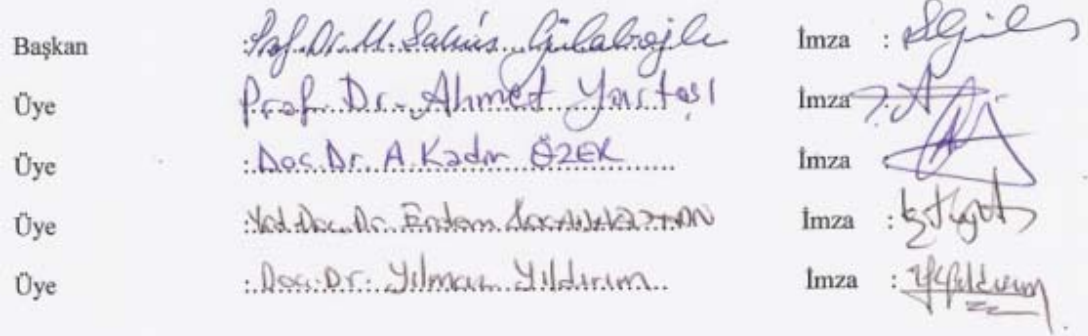 Başkan : Prof. Dr. M. Salih Gülaboğlu İmza :
Üye Prof. Dr. Ahmet Yartaşı İmza :
Üye : Doç. Dr. A. Kadir ÖZEK İmza :
Üye : Yrd. Doç. Dr. Erdem İmza :
Üye : Doç. Dr. Yılmaz Yıldırım İmza :